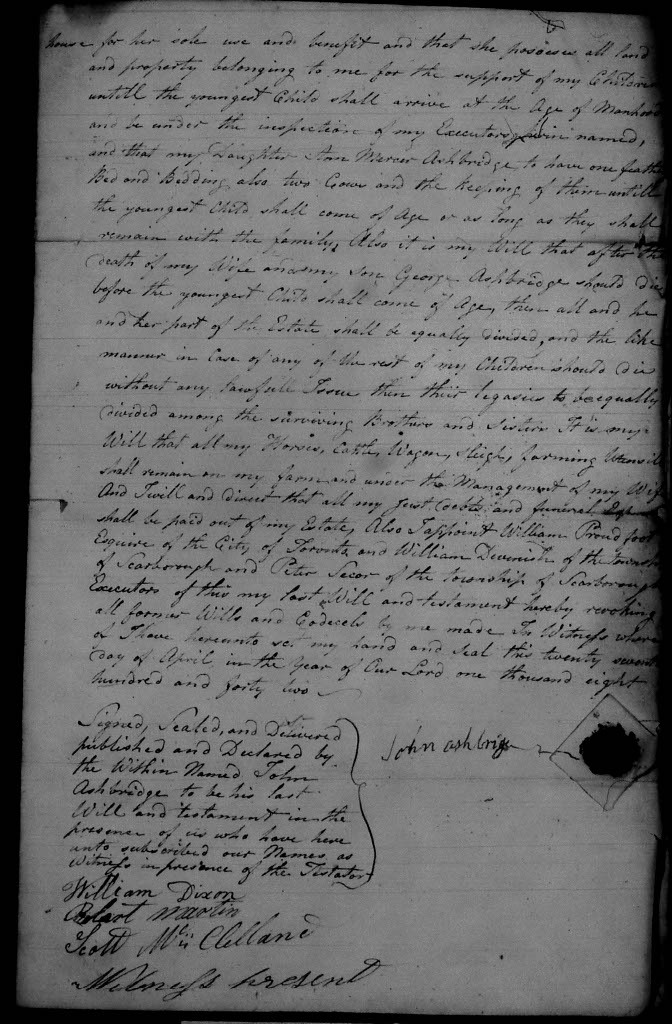 house for her sole use and benefit and that she posseses all land
and property belonging to me for the support of my Children
untill the youngest Child shall arrive at the Age of Manhood
and be under the inspection of my Executors named,
and that my Daughter Ann Mercer Ashbridge to have one feather
Bed and Bedding also two Cows and the keeping of them untill
the youngest Child shall come of Age or as long as they shall
remain with the family, Also it is my Will that after the
death of my Wife and my Son George Ashbridge should die
before the youngest Child shall come of Age, then all and he
and her part of the Estate shall be equally divided, and the like
manner in Case of any of the rest of my Children should die
without any lawfull Issue then their legasies to be equally
divided among the surviving Brothers and Sisters It is my
Will that all my Horses, Cattle, Wagon, Sleigh, farming Utensils
shall remain on my farm and under the Management of my Wife
And I will and direct that all my just debts and funeral
shall be paid out of my Estate, Also I appoint William Proudfoot
Esquire of the City of Toronto and William Devenish of the Township
of Scarborough and Peter Secor of the township of Scarborough
Executors of this my last Will and testament hereby revoking
all former Wills and Codecels by me made In Witness where
of I have hereunto set my hand and Seal this twenty seventh
day of April in the Year of Our Lord one thousand eight
hundred and forty two
Signed, Sealed, and Delivered
published and Declared by
the Within Named John
Ashbridge to be his last
Will and testament in the
presence of us who have here
unto subscribed our Names as
Witness in presence of the Testator
John ashbrige
William Dixon
Robart Martin
Scott McClelland
Witness present